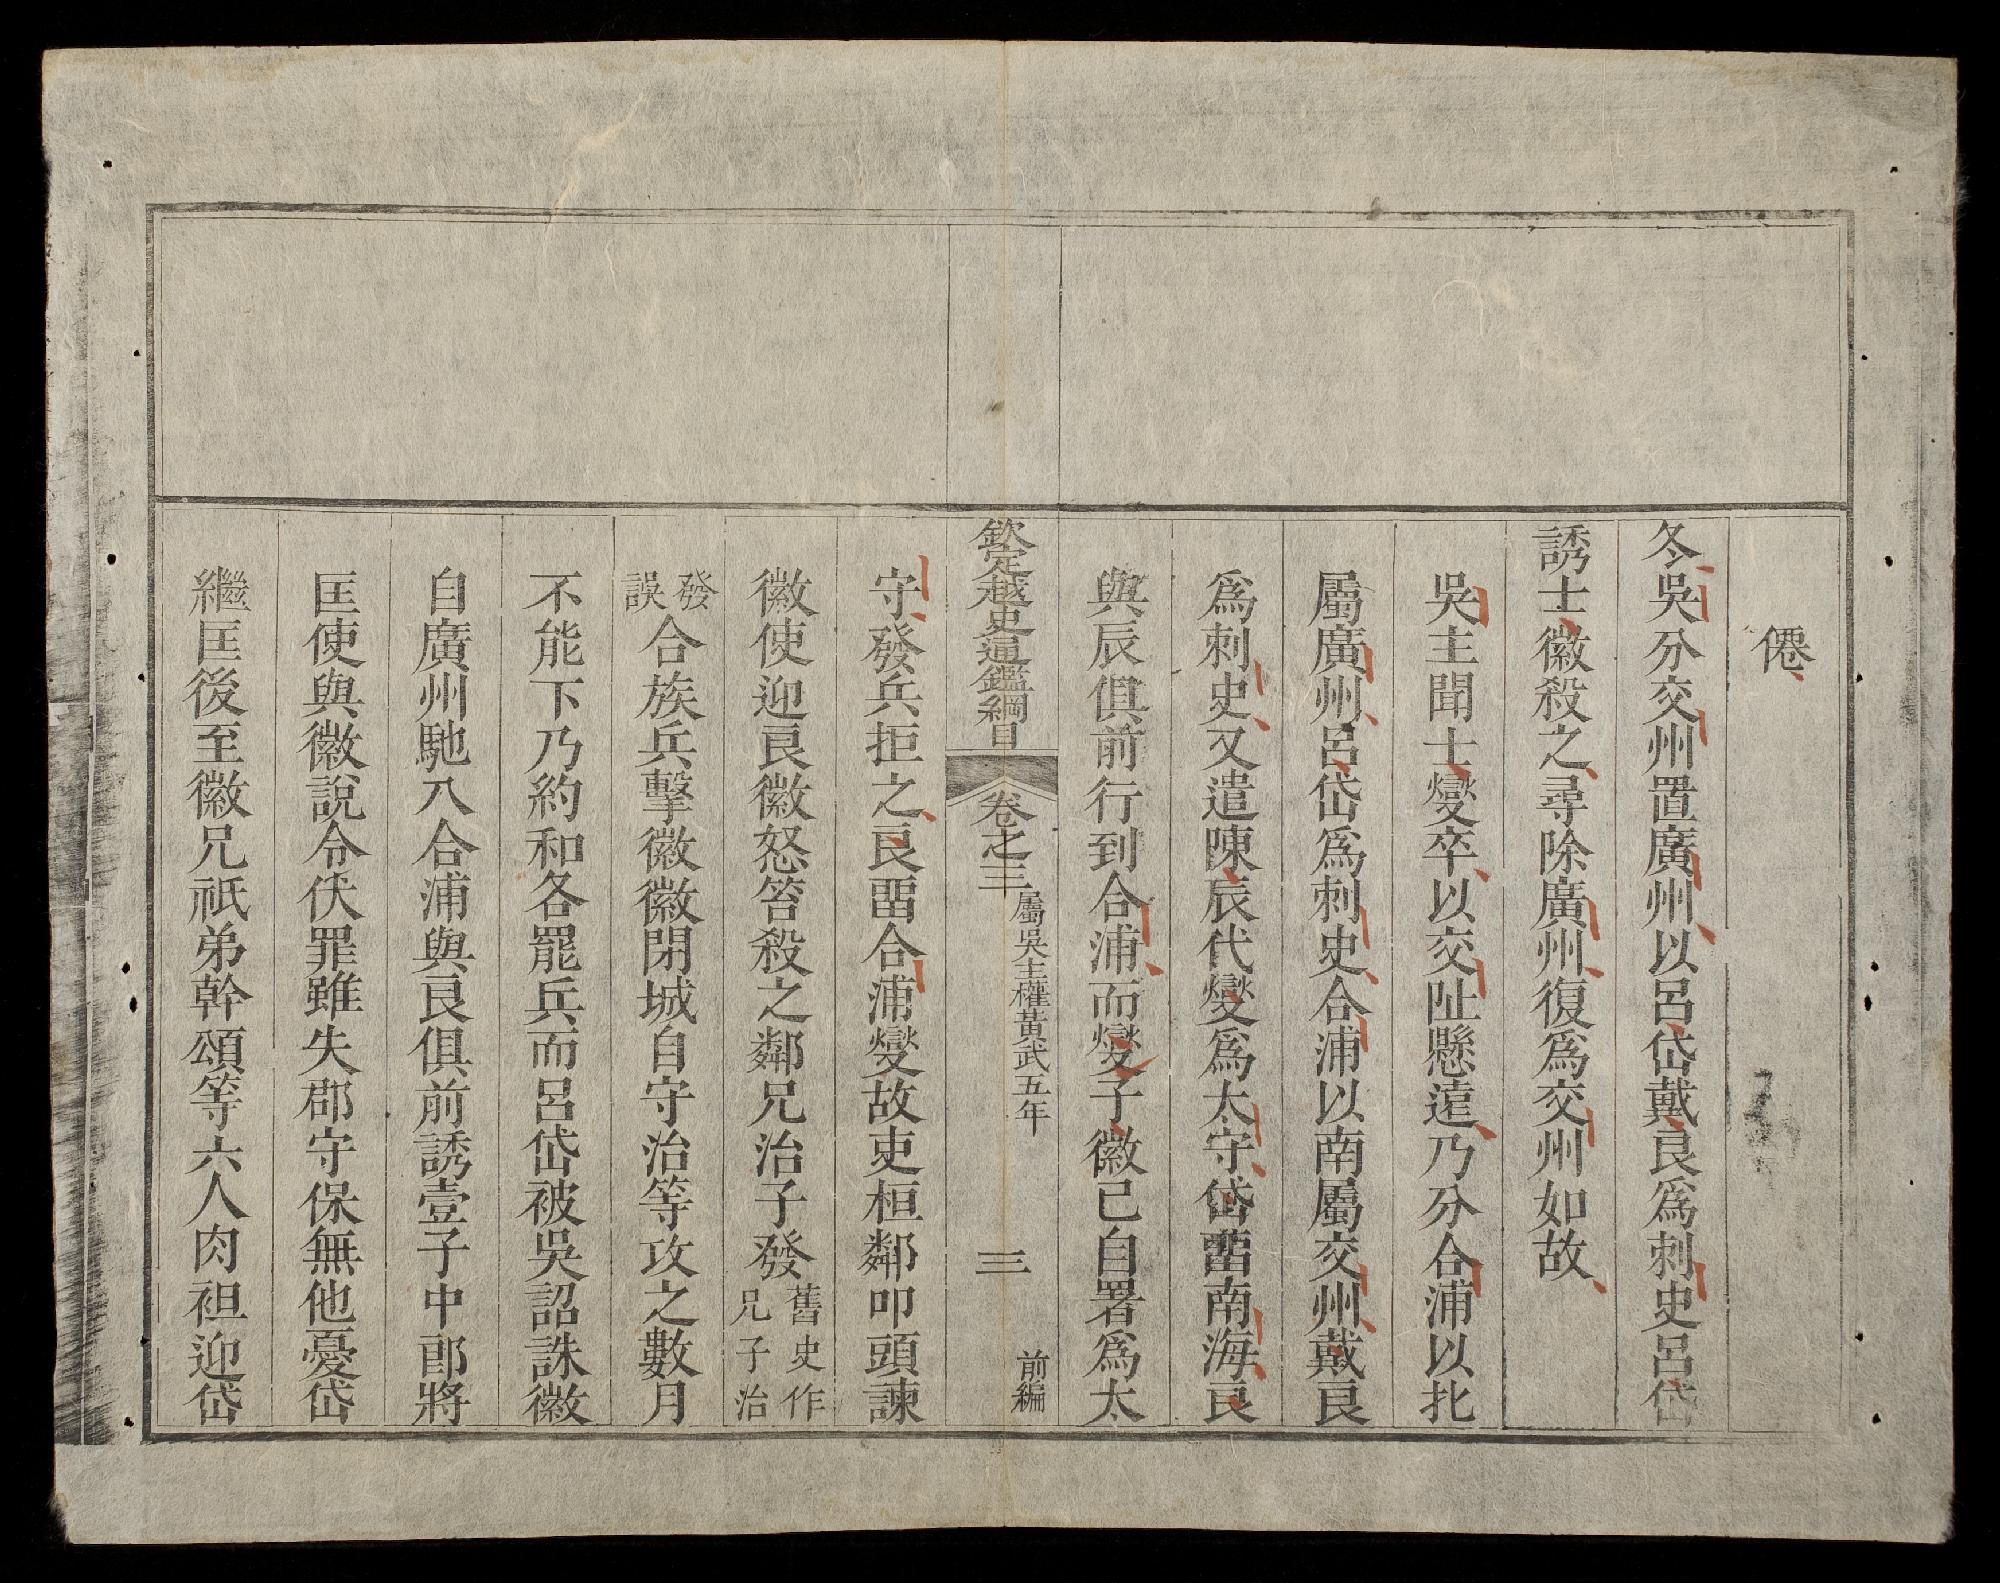 僊
冬吳分交州置廣州以呂岱戴良爲刺史呂岱
誘士徽殺之尋除廣州復爲交州如故
吳主聞士燮卒以交阯懸遠乃分合浦以北
屬廣州呂岱爲刺史合浦以南屬交州戴良
爲刺史又遣陳辰代燮爲太守岱畱南海良
與辰俱前行到合浦而燮子徽已自署爲太
欽定越史通鑑綱目
卷之三
屬吳主權黃武五年
三
前編
守發兵拒之良畱合浦燮故吏桓鄰叩頭諫
徽使迎良徽怒笞殺之鄰兄治子發舊史作兄子治
發誤合族兵擊徽徽閉城自守治等攻之數月
不能下乃約和各罷兵而呂岱被吳詔誅徽
自廣州馳入合浦與良俱前誘壹子中郎將
匡使與徽說令伏罪雖失郡守保無他憂岱
繼匡後至徽兄祇弟幹頌等六人肉袒迎岱